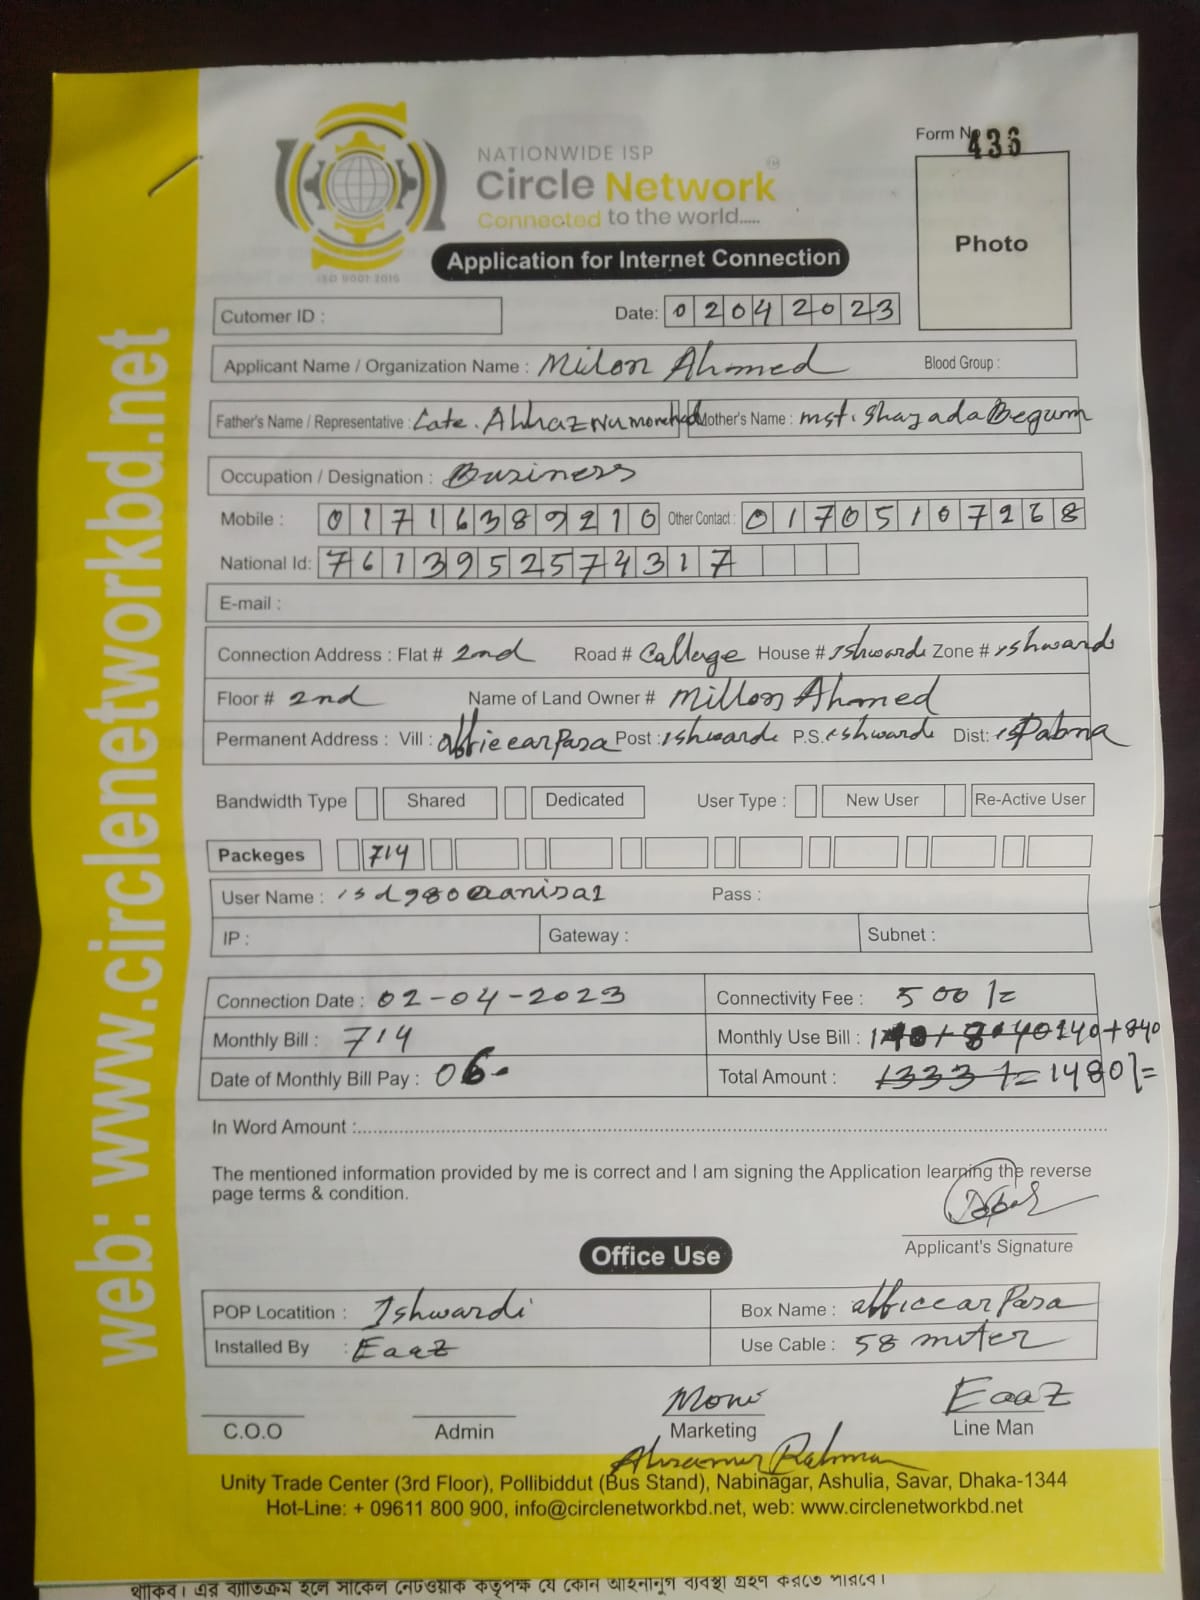 Form No
436
NATIONWIDE ISP
Circle Network
Connected to the world.....
ISO 9001 2015
Application for Internet Connection
Photo
web: www.circlenetworkbd.net
Cutomer ID :
Date: 02042023
Applicant Name / Organization Name : Milon Ahmed Blood Group :
Father's Name / Representative : Late. Mother's Name : mst. Shazada Begum
Occupation / Designation : Business
Mobile : 01716389210 Other Contact : 01705107268
National Id: 7613952574317
E-mail :
Connection Address : Flat # 2nd Road # Callege House # Ishwardi Zone # Ishwardi
Floor # 2nd Name of Land Owner # Millon Ahmed
Permanent Address : Vill : Post : Ishwardi P.S. Ishwardi Dist: Pabna
Bandwidth Type Shared Dedicated User Type : New User Re-Active User
Packeges 714
User Name : Pass :
IP : Gateway : Subnet :
Connection Date : 02-04-2023 Connectivity Fee : 500/=
Monthly Bill : 714 Monthly Use Bill : 140+840
Date of Monthly Bill Pay : 06. Total Amount : 1333/= 1480/=
In Word Amount :
The mentioned information provided by me is correct and I am signing the Application learning the reverse
page terms & condition.
Applicant's Signature
Office Use
POP Locatition : Ishwardi Box Name :
Installed By : Eaaz Use Cable : 58 miter
Moni Eaaz
C.O.O Admin Marketing Line Man
Rahman
Unity Trade Center (3rd Floor), Pollibiddut (Bus Stand), Nabinagar, Ashulia, Savar, Dhaka-1344
Hot-Line: + 09611 800 900, info@circlenetworkbd.net, web: www.circlenetworkbd.net
থাকিব। এর ব্যতিক্রম হলে সার্কেল নেটওয়ার্ক কর্তৃপক্ষ যে কোন আইনানুগ ব্যবস্থা গ্রহণ করতে পারবে।